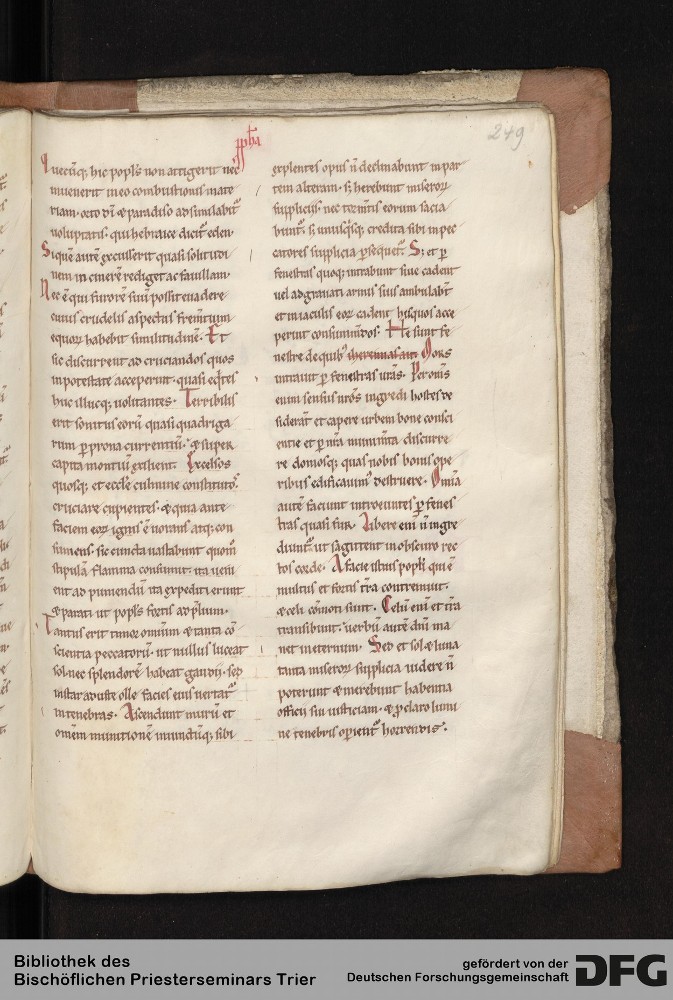 249
ꝓph̅a
uectiq; hic popl's non attigerit nec
inuenerit in eo combustionis mate
riam. octo dī & paradiso adsimilabit᷑
uoluptatis. qui hebraice dicit᷑ eden.
Siquē autē excusserit quasi solitudi
nem in cinerē rediget ac fauillam.
Nec ē qui furorē suū possit euadere
cuius crudelis aspectus frem̄tium
equoꝝ habebit similitudinē. Et
sic discurrent ad cruciandos quos
in potestate acceperint. quasi eq̄tes
huc illucq; uolitantes. Terribilis
erit sonitus eorū quasi quadriga
rum ꝑ prona currentiū. & super
capita montiū exilient. Excelsos
quosq; et eccl'e culmine constitutos.
cruciare cupientes. & quia ante
faciem eoꝝ ignis ē uorans atq; con
sumens. sic cuncta uastabunt quom̊
stipulā flamma consumit. ita ueni
ent ad puniendū ita expediti erunt
& parati ut popl's fortis ad p̄lium.
Tantus erit timor omium & tanta cō
scientia peccatorū. ut nullus luceat
sol. nec splendorē habeat gaudij. sed
instar aduste olle facies eius uertat᷑
in tenebras. Ascendunt murū et
omem munitionē muundiq; sibi
explentes opus n̄ declinabunt in par
tem alteram. s; herebunt miseroꝝ
supplicijs. nec tormtis eorum sacia
bunt᷑. s; unusq'sq; credita sibi in pec
catores supplicia ꝑsequet᷑. S; et ꝑ
fenestras quoq; intrabunt siue cadent
uel adgrauati armis suis ambulabt̄
et in iaculis eoꝝ cadent hisquos acce
perint consumm̄dos. He sunt fe
nestre de quib; iheremias ait. Mors
intrauit ꝑ fenestras ur̄as. Per om̄s
enim sensus nr̄os ingredi hostes de
siderāt et capere urbem bone consci
entie et ꝑ m̄ia munim̄ta discurre
re domosq; quas nobis bonis ope
ribus edificauim᷒ destruere. Om̄ia
autē faciunt introeuntes ꝑ fenes
tras quasi fur. Libere eni n̄ ingre
diunt᷑. ut sagittent in obscuro rec
tos corde. A facie istius popl'i qui ē
multus et fortis tr̄a contremuit.
& celi cōmoti sunt. Celū eni et tr̄a
transibunt. uerbū autē dn̄i ma
net in eternum. Sed et sol & luna
tanta miseroꝝ supplicia uidere n̄
poterunt & merebunt habentia
officij sui iusticiam. & ꝓ claro lumi
ne tenebris oꝑient᷑ horrendis.
Bibliothek des
Bischöflichen Priesterseminars Trier
gefördert von der
Deutschen Forschungsgemeinschaft
DFG